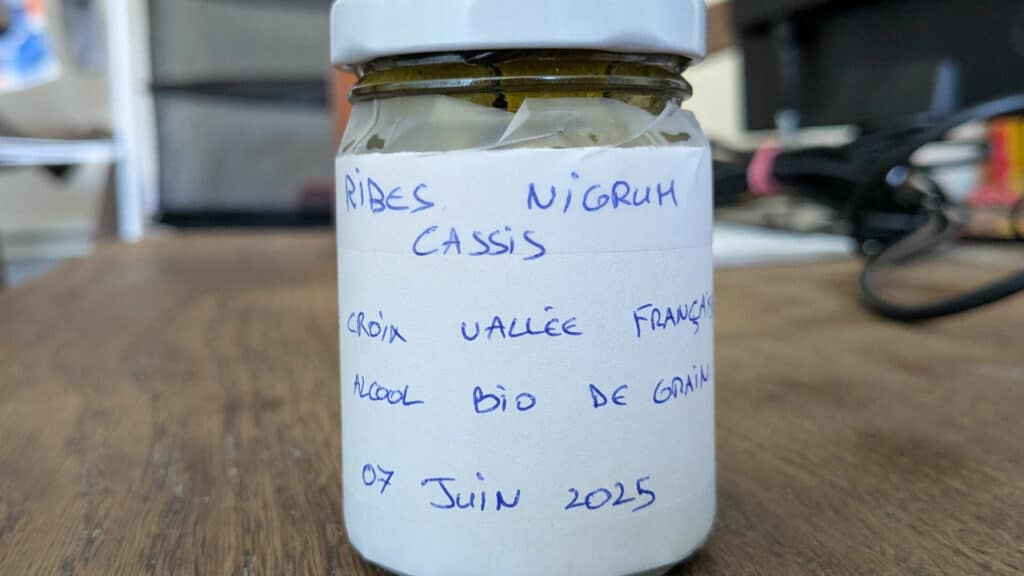 RIBES NIGRUM
CASSIS
CROIX VALLÉE FRANÇAIS
ALCOOL BIO DE GRAIN
07 JUIN 2025